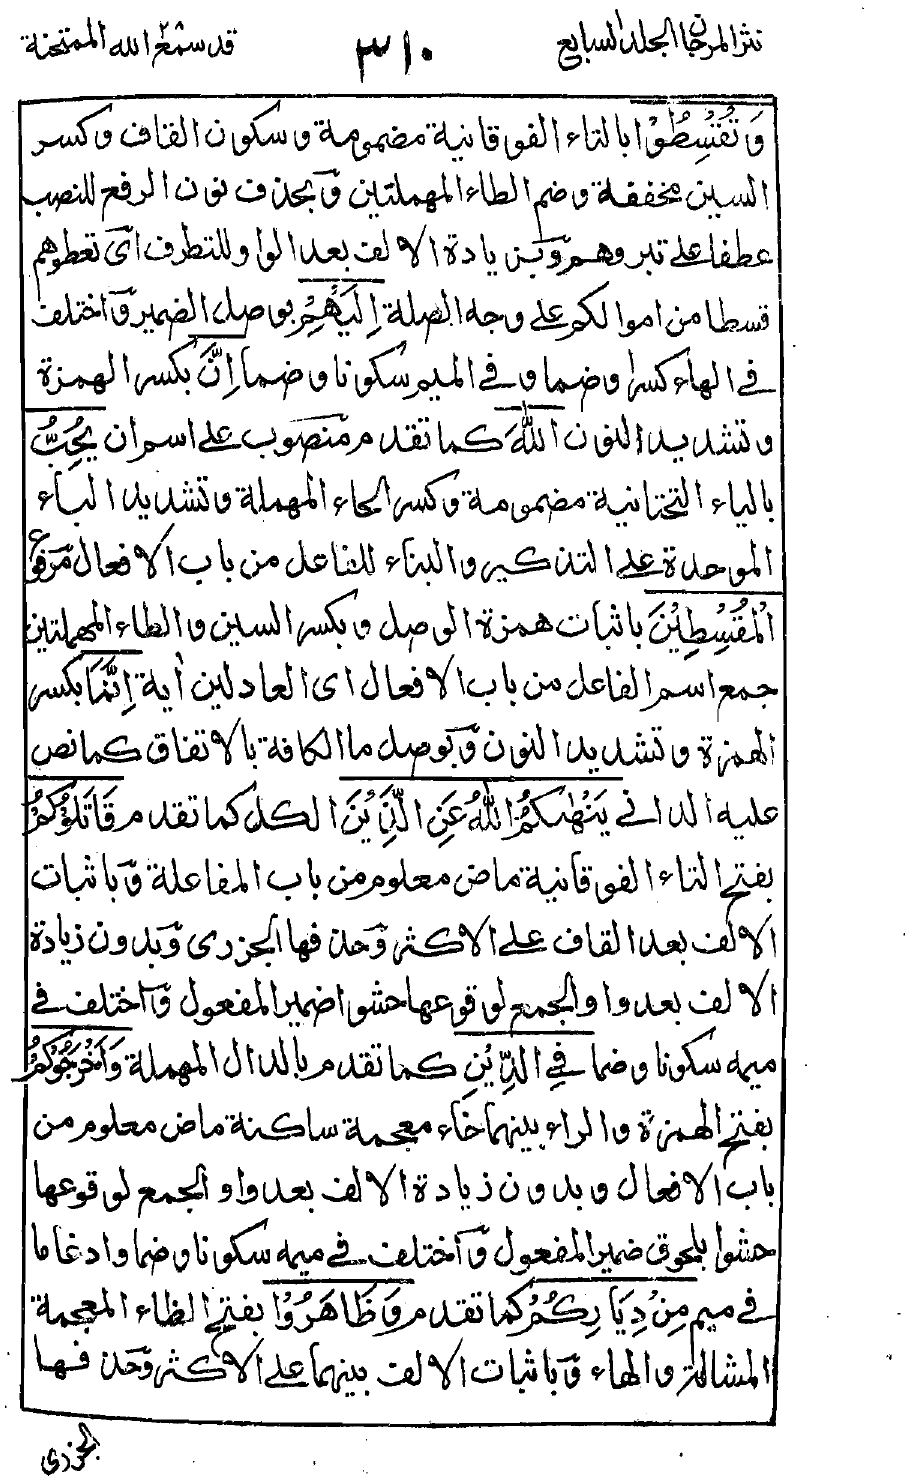 نثر المرجان الجلد السابع
٣١٠
قد سمع ٢٨ الله الممتحنة
وَتُقْسِطُوْا بالتاء الفوقانية مضمومة وسكون القاف وكسر
السين مخففة وضم الطاء المهملتين وبحذف نون الرفع للنصب
عطفا على تبروهم وبزيادة الالف بعد الواو للتطرف اى تعطوهم
قسطا من اموالكم على وجه الصلة اِلَيْهِمْ بوصل الضمير واختلف
فى الهاء كسرا وضما وفى الميم سكونا وضما اِنَّ بكسر الهمزة
وتشديد النون اللّٰهَ كما تقدم منصوب على اسم ان يُحِبُّ
بالياء التحتانية مضمومة وكسر الحاء المهملة وتشديد الباء
الموحدة على التذكير والبناء للفاعل من باب الافعال مرفوع
الْمُقْسِطِيْنَ باثبات همزة الوصل وبكسر السين والطاء المهملتين
جمع اسم الفاعل من باب الافعال اى العادلين اٰية اِنَّمَا بكسر
الهمزة وتشديد النون وبوصل ما الكافة بالاتفاق كما نص
عليه الدانى يَنْهٰىكُمُ اللّٰهُ عَنِ الَّذِيْنَ الكل كما تقدم قَاتَلُوْكُمْ
بفتح التاء الفوقانية ماض معلوم من باب المفاعلة وباثبات
الالف بعد القاف على الاكثر وحذفها الجزرى وبدون زيادة
الالف بعد واو الجمع لوقوعها حشوا ضمير المفعول واختلف فى
ميمه سكونا وضما فِى الدِّيْنِ كما تقدم بالدال المهملة وَاَخْرَجُوْكُمْ
بفتح الهمزة والراء بينهما خاء معجمة ساكنة ماض معلوم من
باب الافعال وبدون زيادة الالف بعد واو الجمع لوقوعها
حشوا بلحوق ضمير المفعول واختلف فى ميمه سكونا وضما وادغاما
فى ميم مِنْ دِيَارِكُمْ كما تقدم وَظَاهَرُوْا بفتح الظاء المعجمة
المشالة والهاء وباثبات الالف بينهما على الاكثر وحذفها
الجزرى